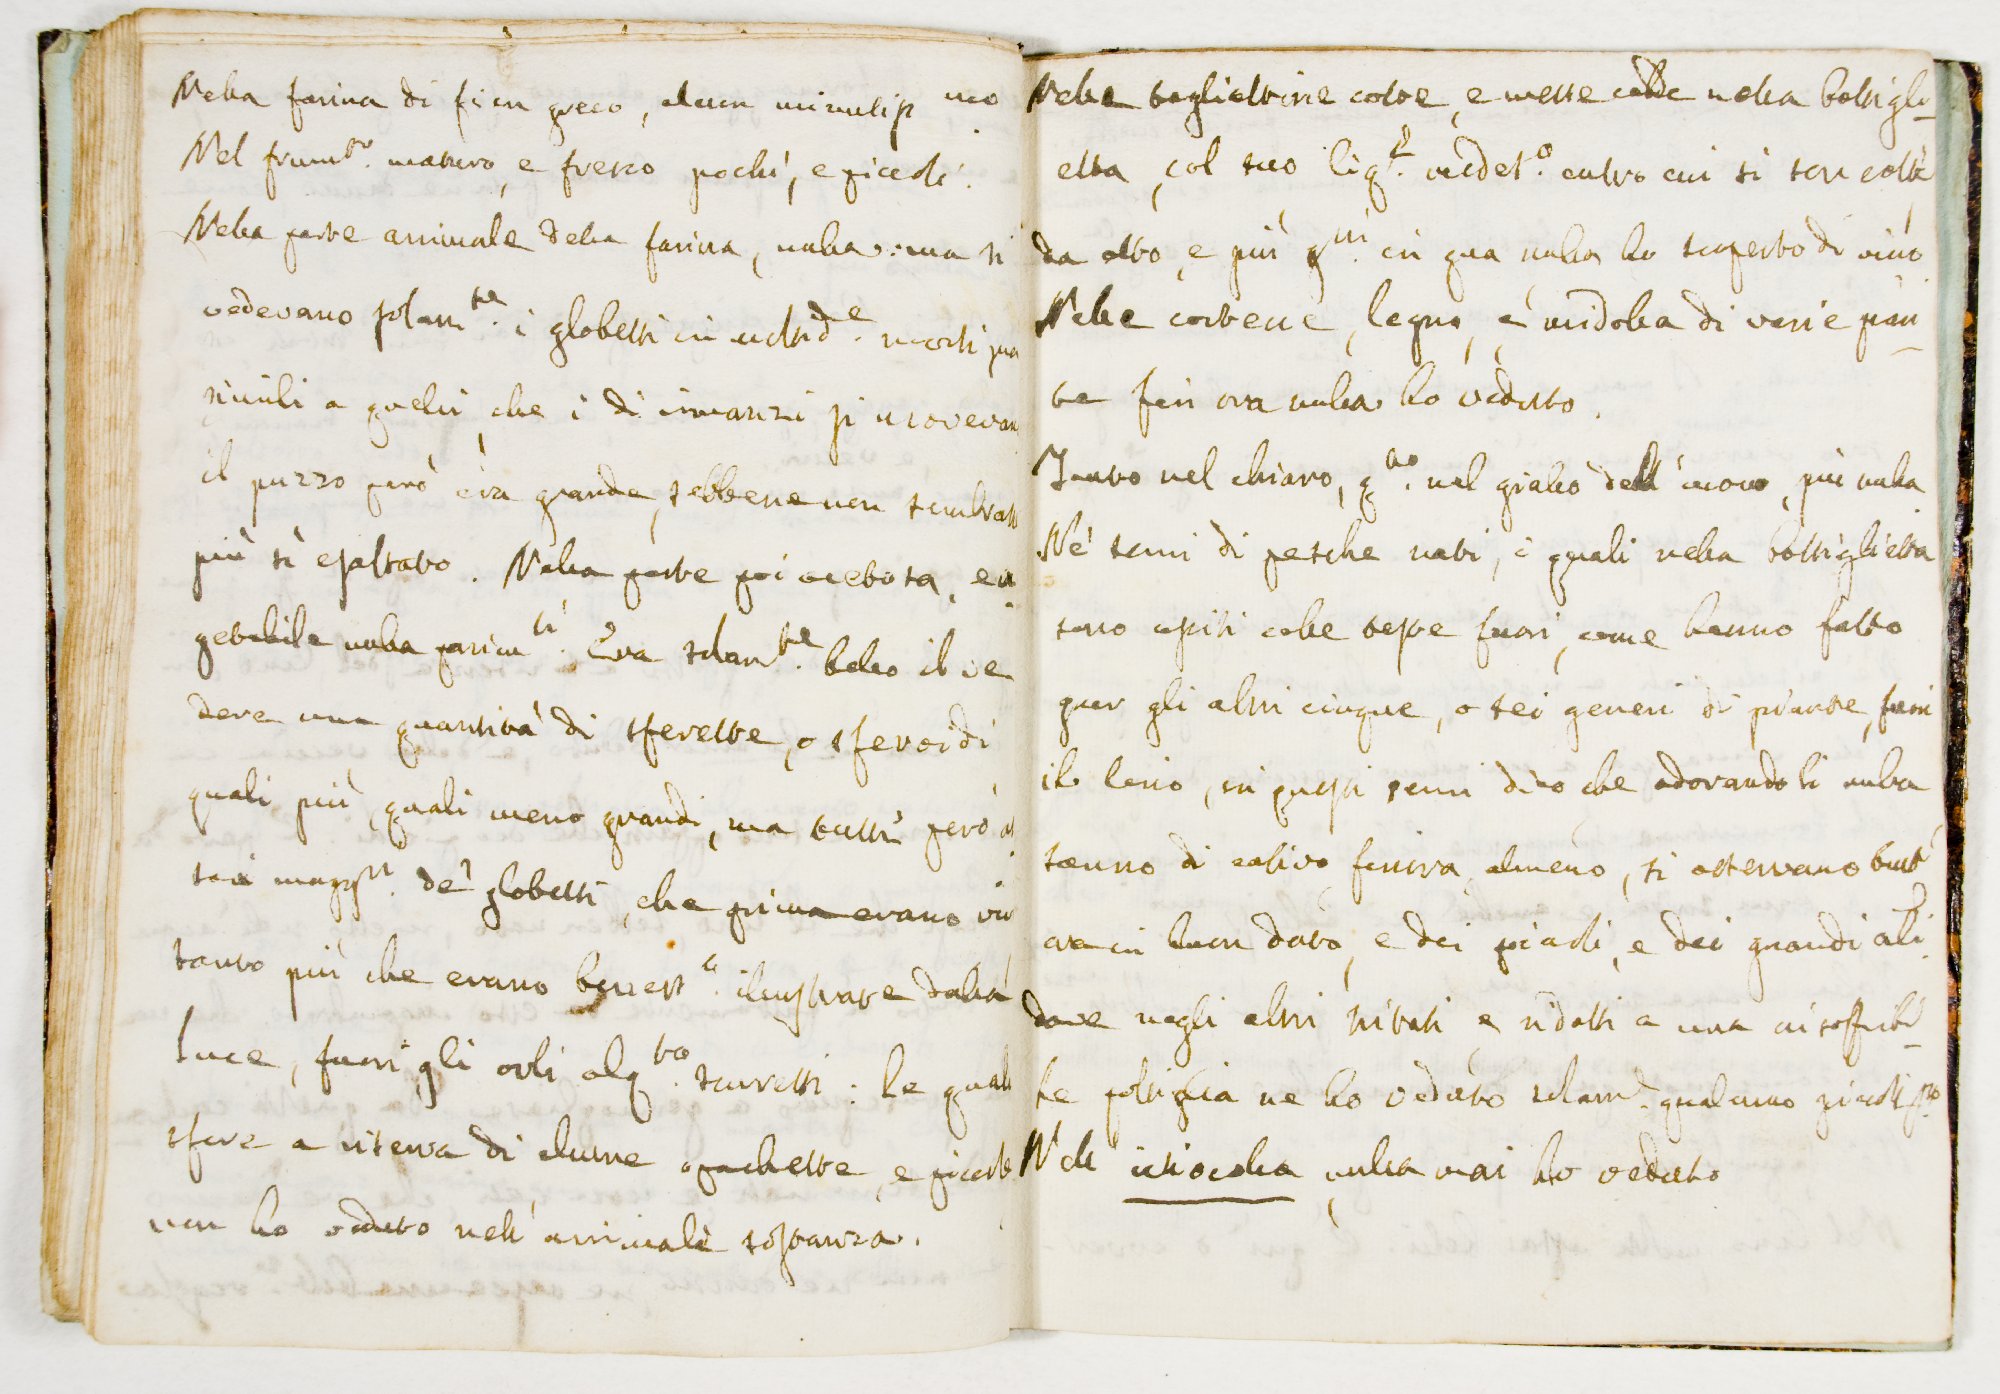 Nella farina di fien greco, alcun minutiss.mo
Nel frum.to maturo, e fresco pochi, e piccoli.
Nella parte animale della farina, nulla: ma si
vedevano solam.te i globetti in moltid.e morti qua
simili a quelli, che i dì innanzi si movevan
il puzzo però era grande, sebbene non sembrass
più sì esaltato. Nella parte poi acetosa, e ve
getabile nulla parim.ti Era solam.te bello il ve
dere una quantità di sferette, o sferoidi
quali più, quali meno grandi, ma tutti però as
sai magg.ri de' globetti, che prima erano vivi
tanto più che erano beness.o illustrate dalla
luce, fuori gli orli alq.to scuretti: le quali
sfere a riserva di alcune opachette, e piccole
non ho veduto nell'animale sostanza.
Nelle tagliettine cotte, e messe calde nella bottigli-
etta, col suo liq.e ridot.o entro cui si son cotte
da otto, e più g.ni in qua nulla ho scoperto di vivo
Nelle cortecce, legno, e midolla di varie pian-
te fin ora nulla ho veduto.
Tanto nel chiaro, q.to nel giallo dell'uovo, più nulla
Ne' semi di pesche nati, i quali nella bottiglietta
sono usciti colle teste fuori, come hanno fatto
pur gli altri cinque, o sei generi di piante, fuori
il lino, in questi semi dico che odorandoli nulla
sanno di cativo finora almeno, si osservano tutt'
ora in buon dato, e dei piccoli, e dei grandi ali
dove negli altri tritati e ridotti a una insoffribi-
le poltiglia ne ho veduto solam.e qualcuno piccoliss.mo
Nell' ictiocolla nulla mai ho veduto